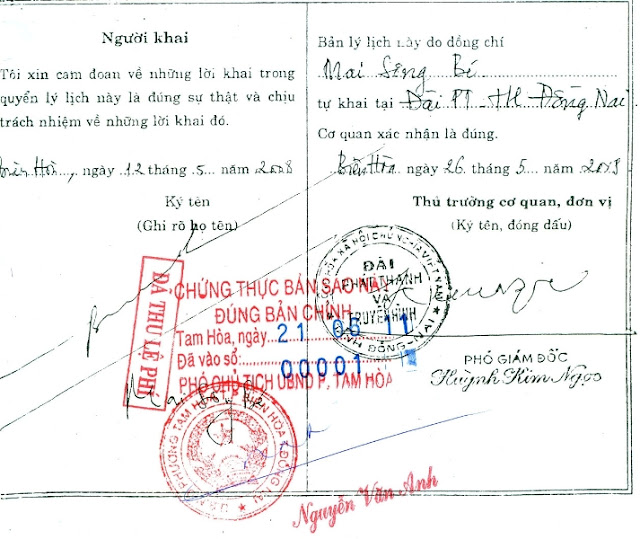 Người khai
Tôi xin cam đoan về những lời khai trong
quyển lý lịch này là đúng sự thật và chịu
trách nhiệm về những lời khai đó.
Biên Hòa, ngày 12 tháng .5... năm 2008
Ký tên
(Ghi rõ họ tên)
Bản lý lịch này do đồng chí
Mai Sông Bé
tự khai tại Đài PT-TH Đồng Nai
Cơ quan xác nhận là đúng.
Biên Hòa ngày 26. tháng .5... năm 2008
Thủ trưởng cơ quan, đơn vị
(Ký tên, đóng dấu)
ĐÀI
PHÁT THANH
VÀ
TRUYỀN HÌNH
TỈNH ĐỒNG NAI
PHÓ GIÁM ĐỐC
Huỳnh Kim Ngọc
ĐÃ THU LỆ PHÍ
CHỨNG THỰC BẢN SAO NÀY
ĐÚNG BẢN CHÍNH
Tam Hòa, ngày 21 05 11
Đã vào sổ: 00001
PHÓ CHỦ TỊCH UBND P, TAM HÒA
Nguyễn Văn Anh